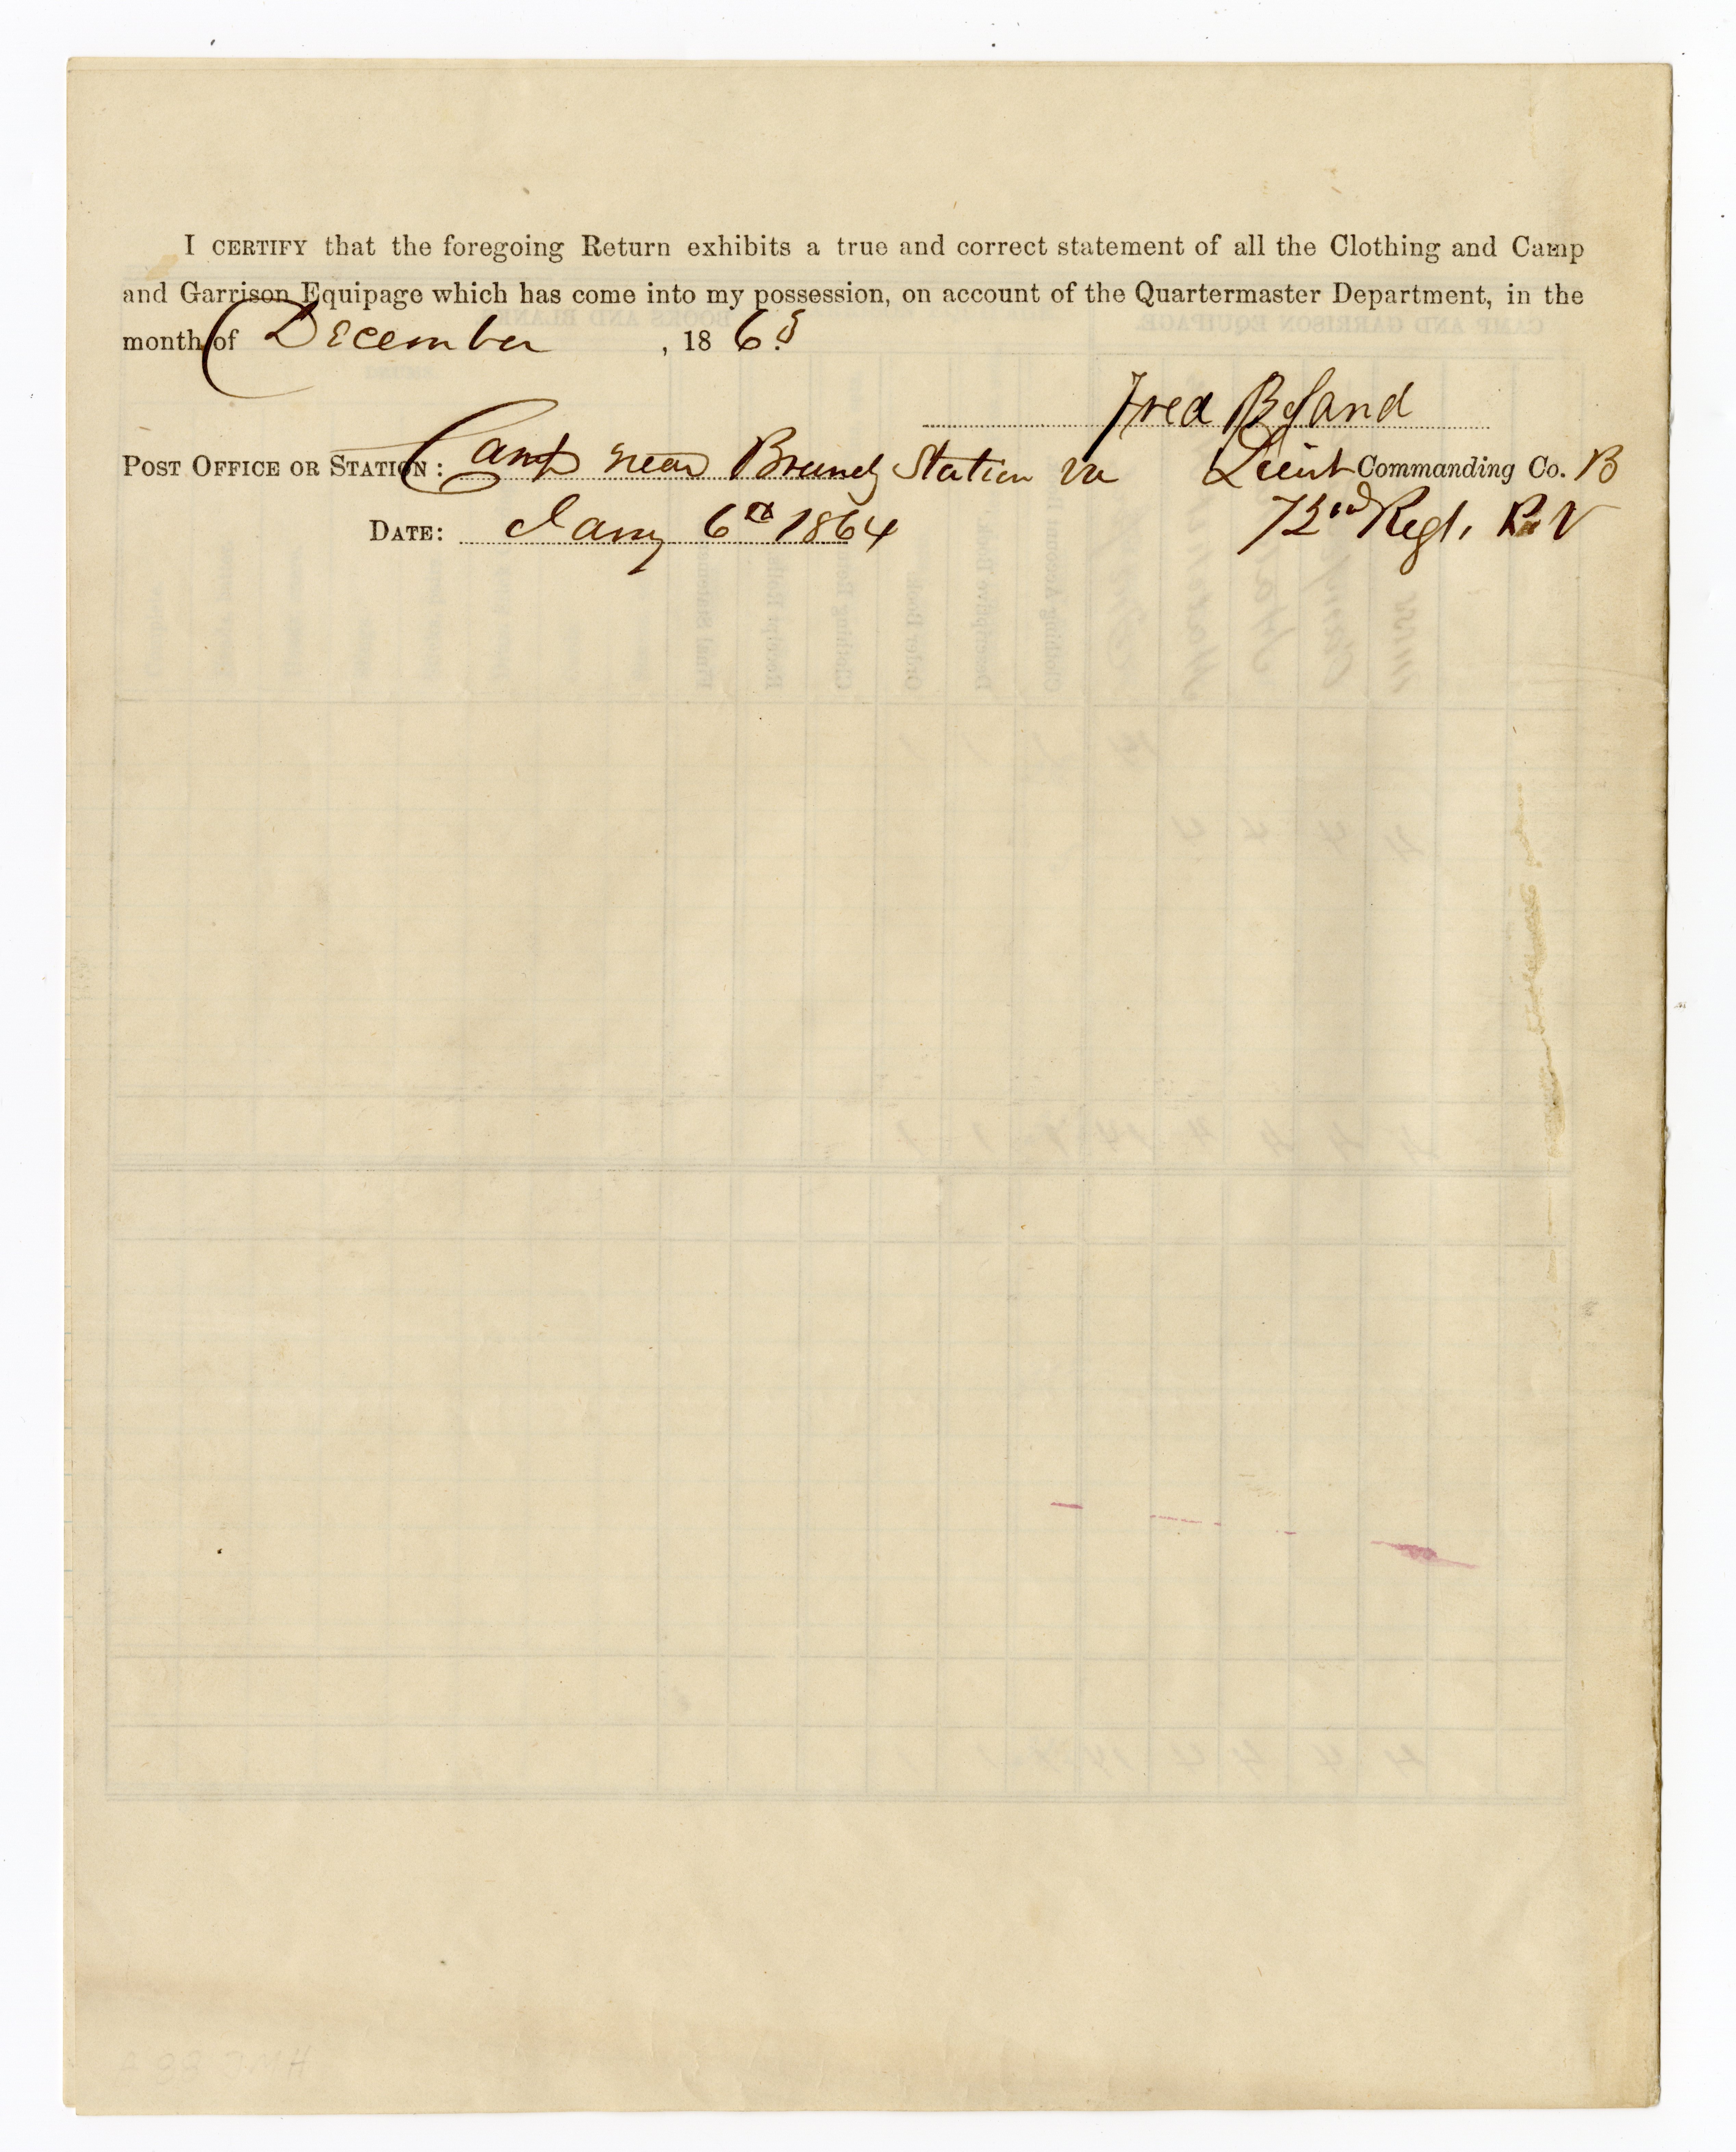 I CERTIFY that the foregoing Return exhibits a true and correct statement of all the Clothing and Camp
and Garrison Equipage which has come into my possession, on account of the Quartermaster Department, in the
month of December , 18 63
Fred
POST OFFICE OR STATION: Camp near Brandy Station Va Lieut Commanding Co. B
DATE: Jany 6th 1864 72nd Regt. P V